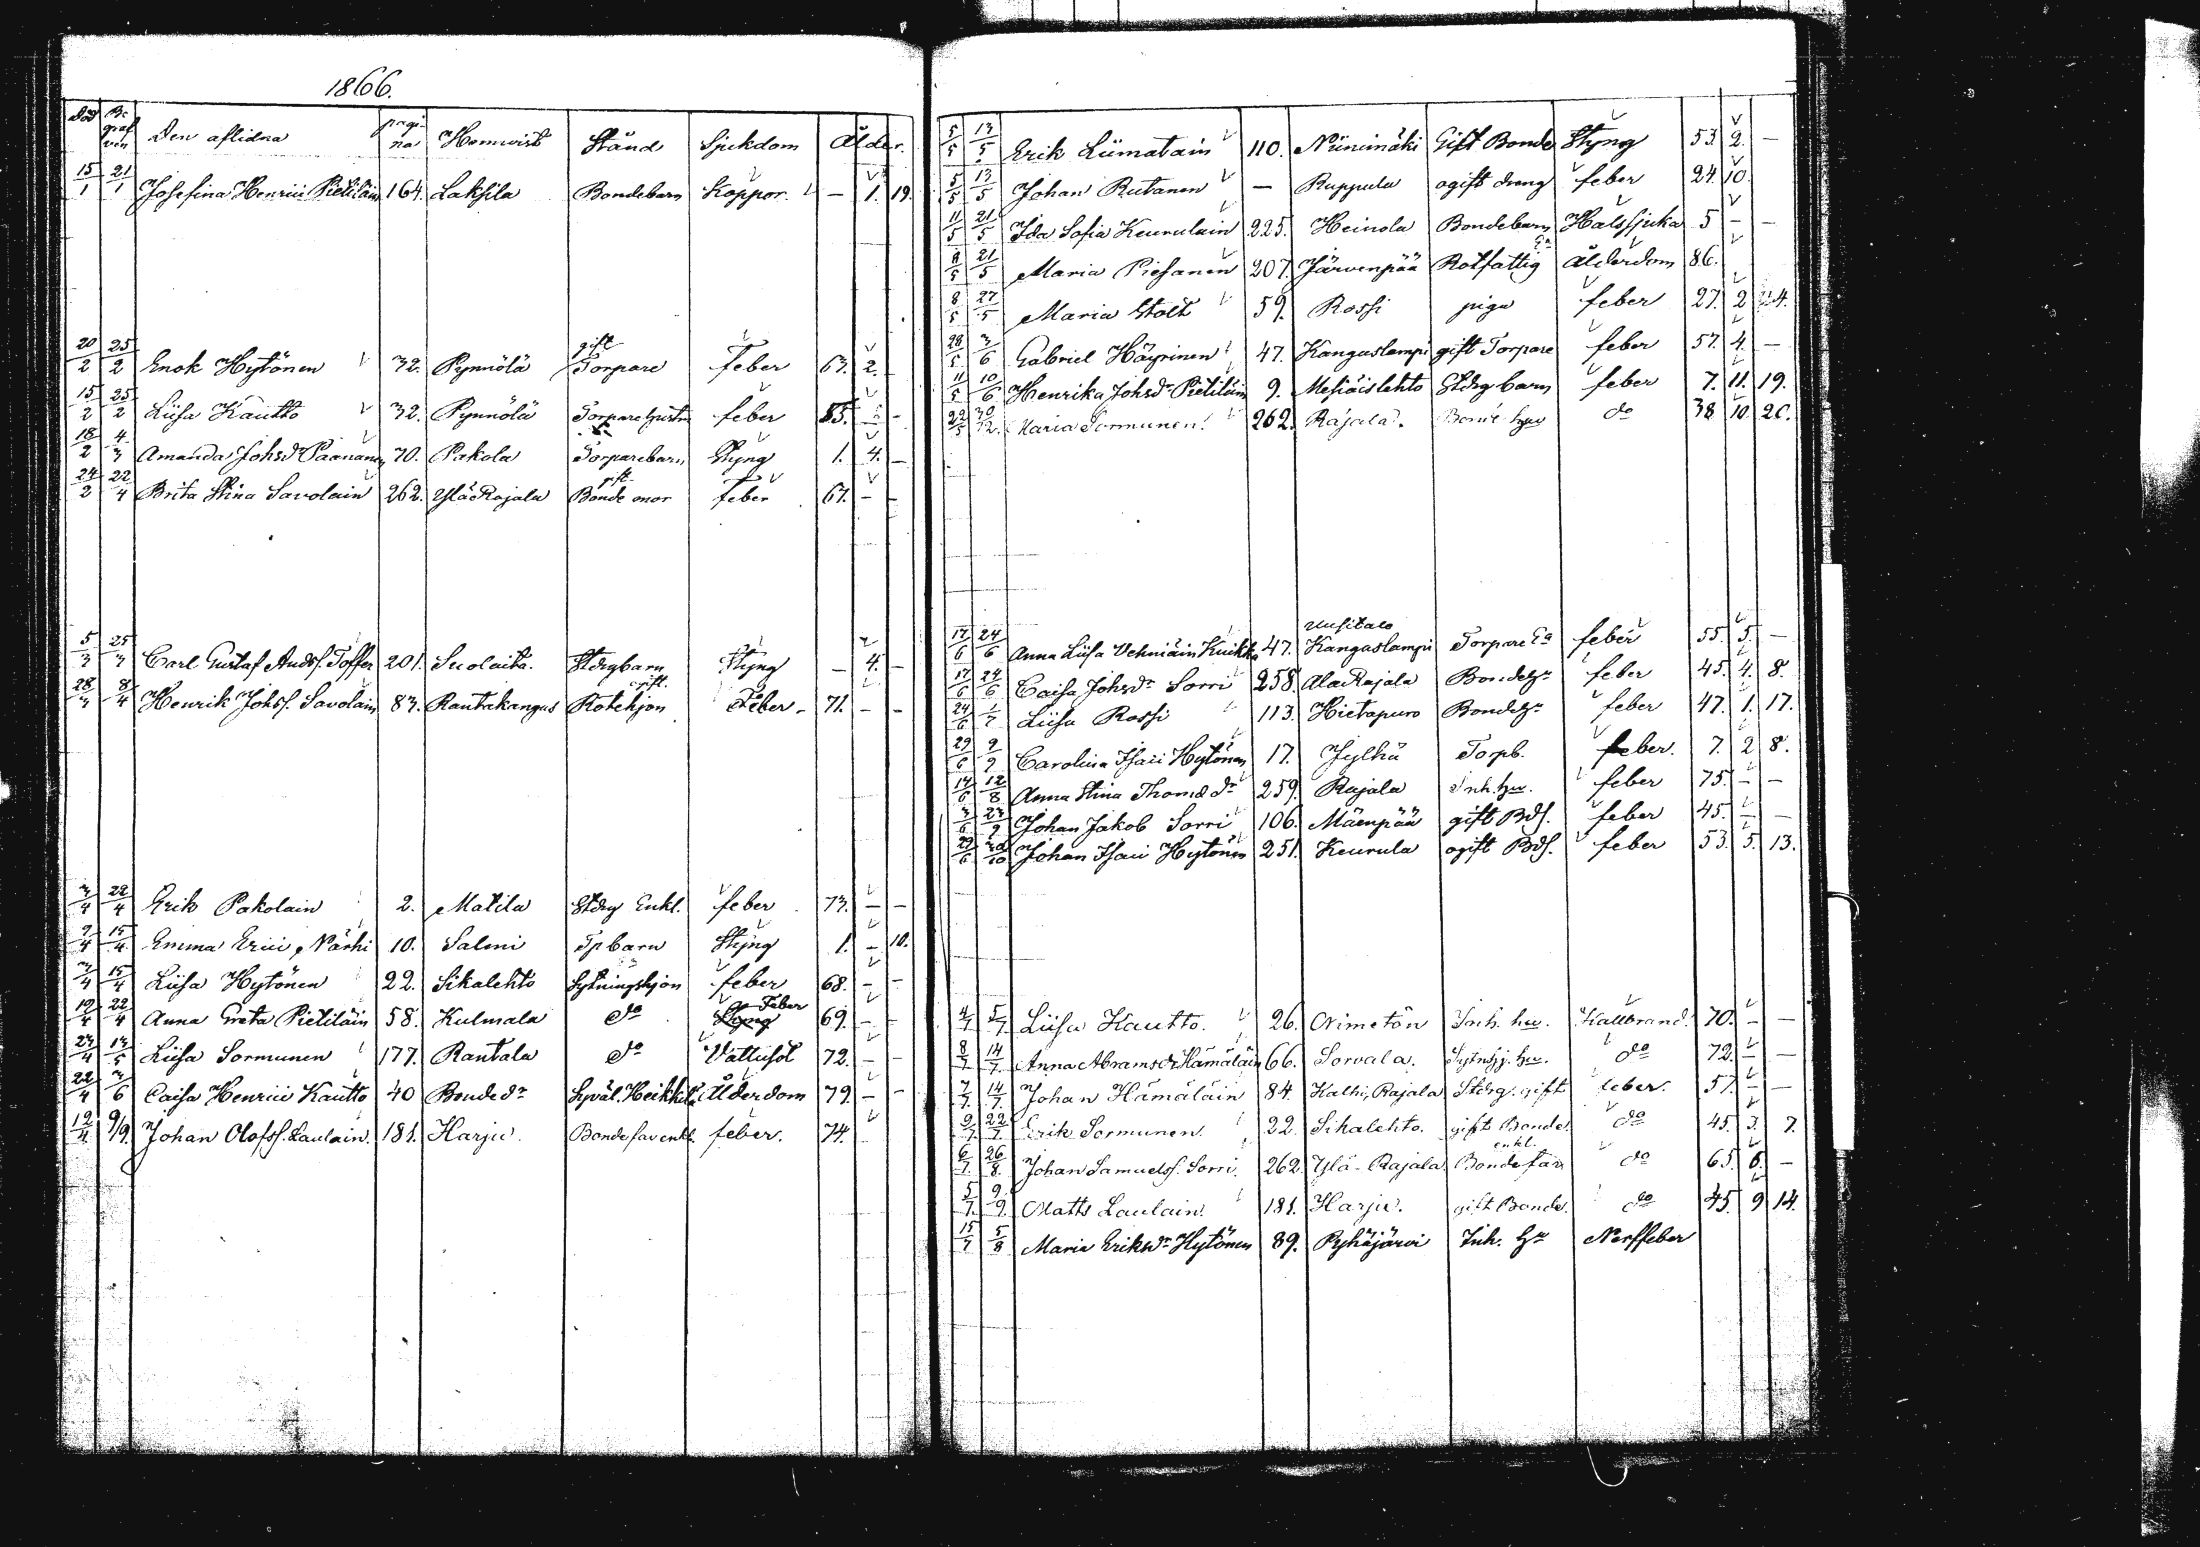 1866.
Död Begrafven Den aflidna pagina Hemvist Stånd Sjukdom Ålder.
15/1 21/1 Josefina Henrici Pietiläin 164. Laksila Bondebarn Koppor. — 1. 19.
gift
20/2 25/2 Enok Hytönen 32. Pynnölä Torpare Feber 63. 2.
15/2 25/2 Liisa Kautto 32. Pynnölä feber 85. - -
18/2 4/3 Amanda Johsdr Paananen 70. Pakola Torparebarn Styng 1. 4. —
gift
24/2 22/4 Brita Stina Savolain 262. Ylä Rajala Bonde mor feber 67. - -
5/3 25/3 Carl Gustaf Andsf. Toffer 201. Suolaita. Stdrgbarn Styng — 4. -
ogift.
28/3 8/4 Henrik Johsf. Savolain 83. Rantakangas Rotehjon Feber - 71. - -
3/4 22/4 Erik Pakolain 2. Matila Stdrg Enkl. feber 73. — —
9/4 15/4 Emma Erici Närhi 10. Salmi Tpbarn Styng 1. - 10.
3/4 15/4 Liisa Hytönen 22. Sikalehto Sytningshjon feber 68. - -
Feber
19/4 22/4 Anna Greta Pietiläin 58. Kulmala do Styng 69. - -
23/4 13/5 Liisa Sormunen 177. Rantala do Vattusot 72. - -
22/4 3/6 Caisa Henrici Kautto 40 Bondedr Spväl. Heikkilä Ålderdom 79. - -
12/4 9/9. Johan Olofsf. Laulain. 181. Harju. Bondefar enkl. feber. 74.
5/5 13/5 Erik Liimatain 110. Niinimäki Gift Bonde Styng 53 2. —
5/5 13/5 Johan Rutanen — Ruppula ogift dreng feber 24. 10.
11/5 21/5 Ida Sofia Keurulain 225. Heinola Bondebarn Halssjuka 5 - —
8/5 21/5 Maria Piesanen 207. Järvenpää Rotfattig Ea Ålderdom 86.
8/5 27/5 Maria Stolt 59. Rossi piga feber 27. 2 24.
28/5 3/6 Gabriel Häyrinen 47. Kanguslampi gift Torpare feber 57. 4. —
11/5 10/6 Henrika Johsdr Pietiläin 9. Mesiäislehto Stdrgbarn feber 7. 11. 19.
22/5 30/12. Maria Sormunen. 262. Rajala. Bonde hu do 38 10 20.
Uusitalo
17/6 24/6 Anna Liisa Vehniäin Kuikka 47. Kangaslampi Torpare Ea feber 55. 5. —
17/6 24/6 Caisa Johsdr Sorri 258. Ala Rajala Bondehu feber 45. 4. 8.
24/6 1/7 Liisa Rossi 113. Hietapuro Bondehu feber 47. 1. 17.
29/6 9/9 Carolina Isaci Hytönen 17. Jylhä Torpb. feber. 7. 2 8.
14/6 12/8 Anna Stina Thomasdr 259. Rajala Inh. hu. feber 75. - —
3/6 23/9 Johan Jakob Sorri 106. Mäenpää gift Bds. feber 45. — —
29/6 /10 Johan Isaci Hytönen 251. Keurula ogift Bds. feber 53. 5. 13.
4/7 5/7. Liisa Kautto. 26. Onimetön Inh. hu. Kallbrand. 70. - —
8/7 14/7. Anna Abramsdr Hämäläin 66. Sorvala. Sytnhj. hu. do 72. - —
7/7. 14/7. Johan Hämäläin 84. Kalhi, Rajala Stdrg. gift feber. 57. - —
9/7. 22/7. Erik Sormunen. 22. Sikalehto. gift Bonde. do 45. 3. 7.
enkl.
6/7. 26/8. Johan Samuelsf. Sorri. 262. Ylä-Rajala. Bondefar do 65. 6. -
5/7. 9/9. Matts Laulain. 181. Harju. gift Bonde. do 45. 9 14.
15/7 5/8 Maria Eriksdr Hytönen 89. Pyhäjärvi Inh. hu Nerffeber